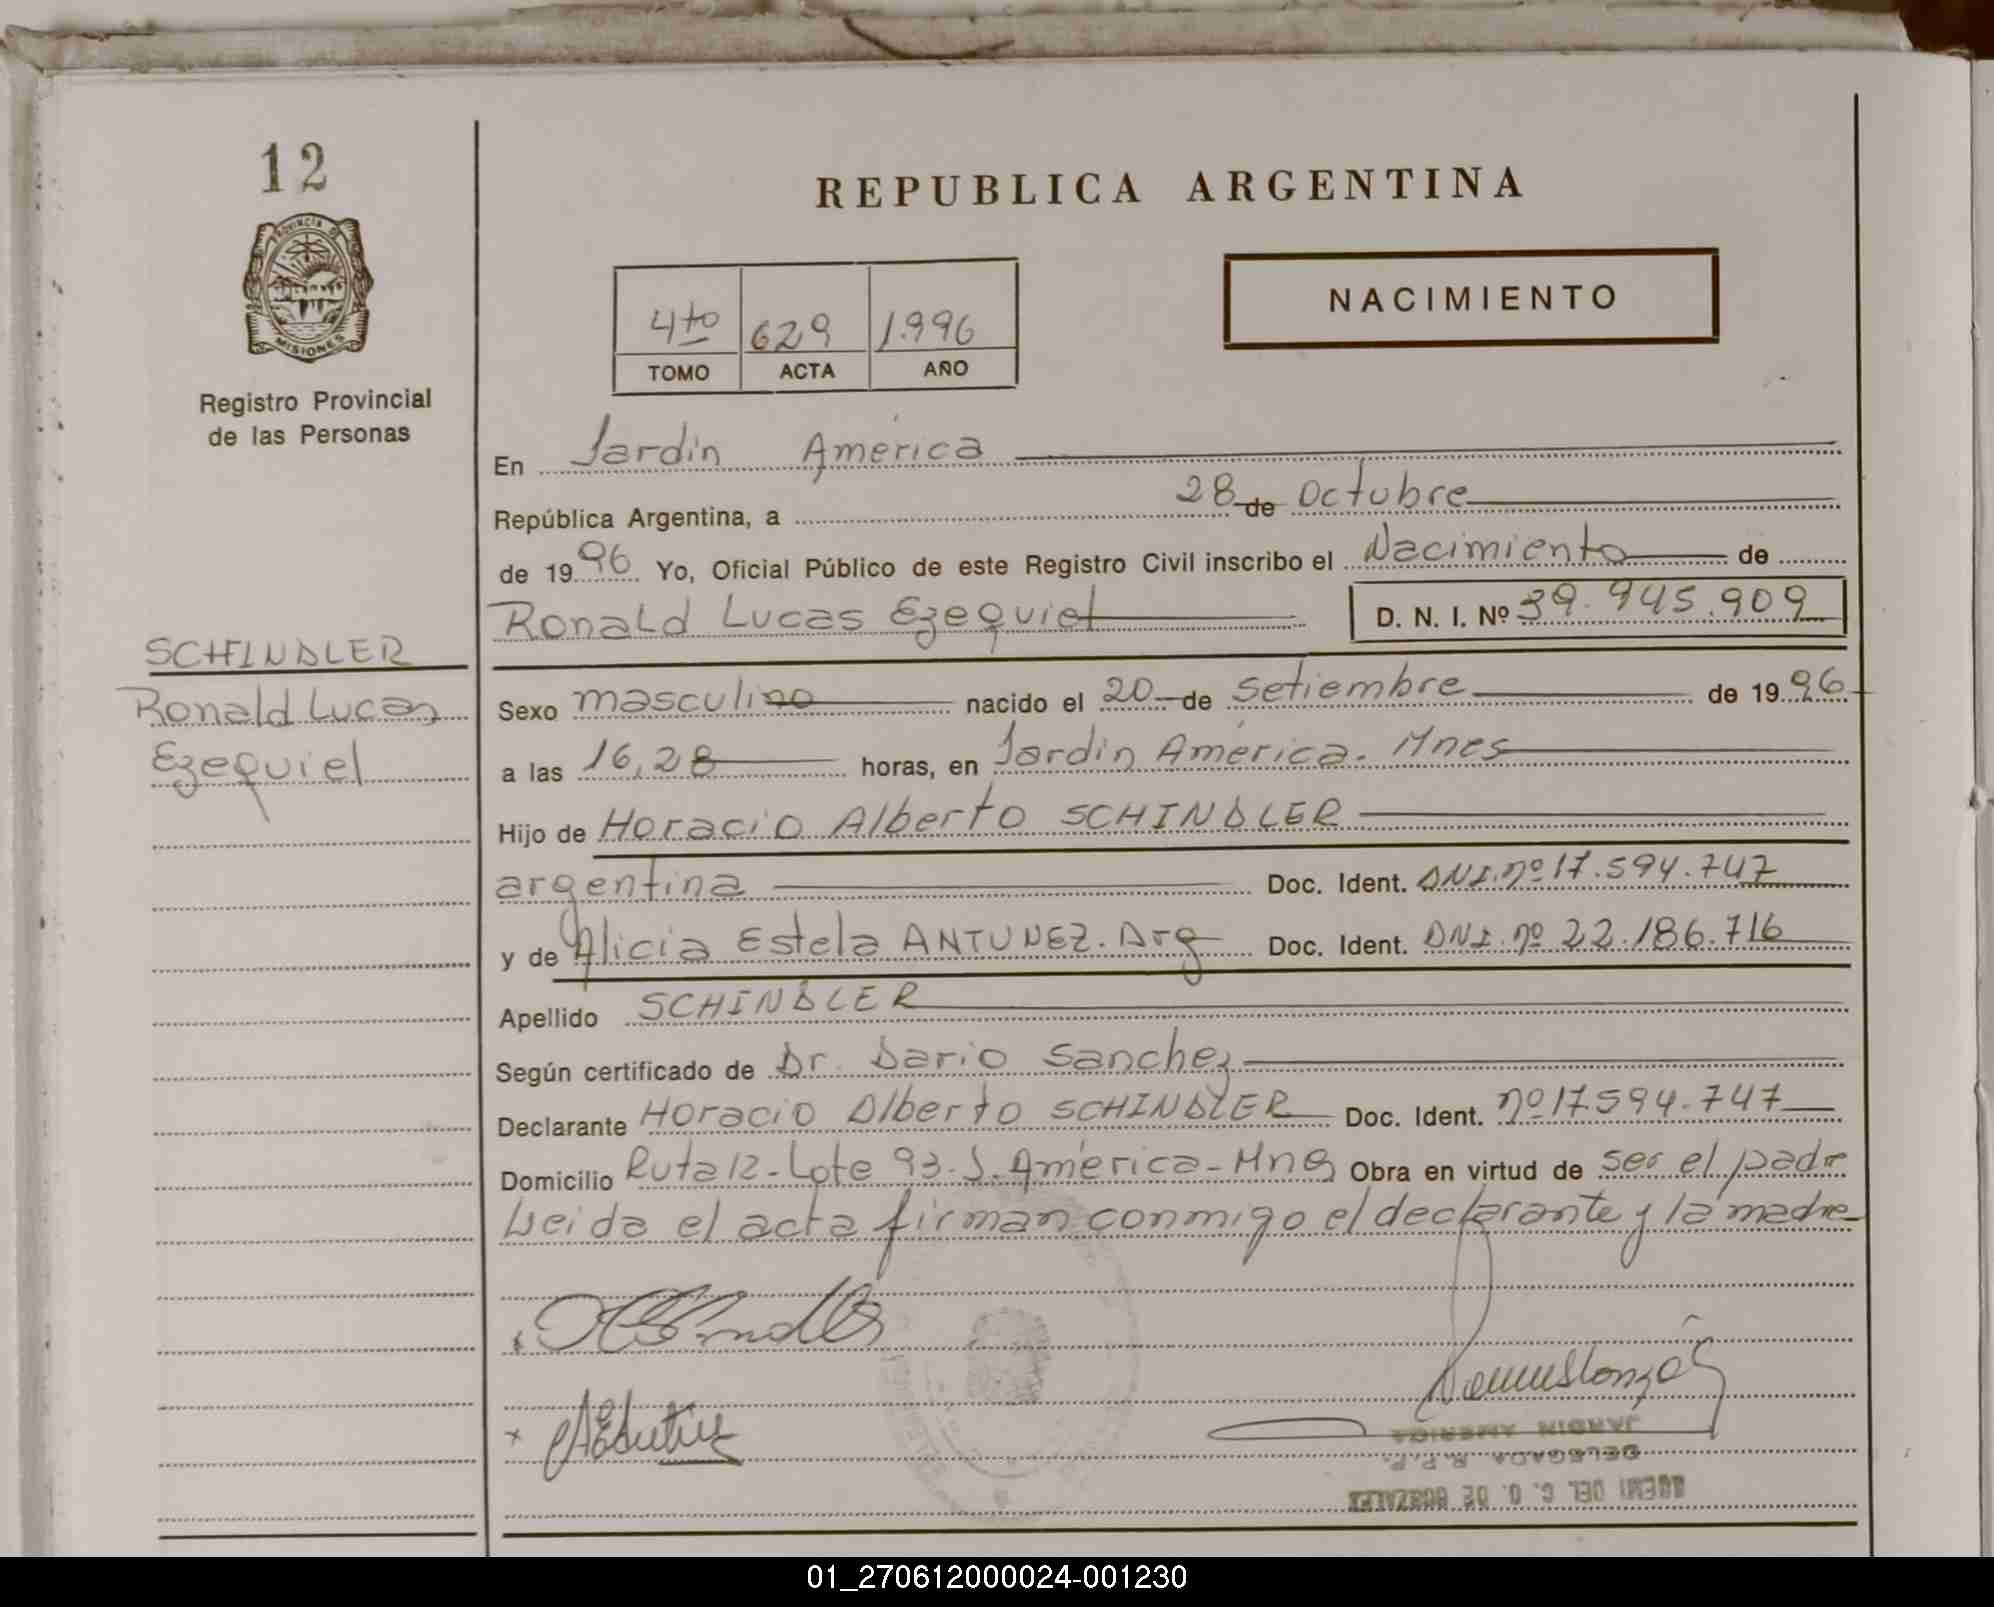 12
PROVINCIA DE
MISIONES
Registro Provincial
de las Personas
SCHINDLER
Ronald Lucas
Ezequiel
REPUBLICA ARGENTINA
4to 629 1.996
TOMO ACTA AÑO
NACIMIENTO
En Jardín América
República Argentina, a 28 de Octubre
de 1996 Yo, Oficial Público de este Registro Civil inscribo el Nacimiento de
Ronald Lucas Ezequiel D. N. I. Nº 39.945.909
Sexo masculino nacido el 20 de Setiembre de 1996
a las 16,28 horas, en Jardín América. Mnes
Hijo de Horacio Alberto SCHINDLER
argentina Doc. Ident. DNI.nº 17.594.747
y de Alicia Estela ANTUNEZ. Arg Doc. Ident. DNI.nº 22.186.716
Apellido SCHINDLER
Según certificado de Dr. Dario Sanchez
Declarante Horacio Alberto SCHINDLER Doc. Ident. nº 17594.747
Domicilio Ruta 12-Lote 93-J. América-Mnes Obra en virtud de ser el padre
Leida el acta firman conmigo el declarante y la madre
JARDIN AMERICA
DELEGADA R.P.P.
NOEMI DEL C. O. DE GONZALEZ
01_270612000024-001230